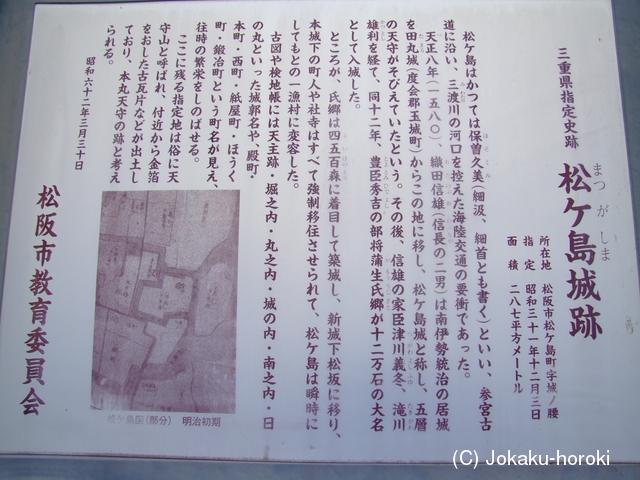 三重県指定史跡
松ケ島城跡
まつ が しま
所在地 松阪市松ケ島町字城ノ腰
指定 昭和三十一年十二月三日
面積 二八七平方メートル
松ケ島はかつては保曽久美(細汲、細首とも書く)といい、参宮古
道に沿い、三渡川の河口を控えた海陸交通の要衝であった。
天正八年(一五八〇)、織田信雄(信長の二男)は南伊勢統治の居城
を田丸城(度会郡玉城町)からこの地に移し、松ケ島城と称し、五層
の天守がそびえていたという。その後、信雄の家臣津川義冬、滝川
雄利を経て、同十二年、豊臣秀吉の部将蒲生氏郷が十二万石の大名
として入城した。
ところが、氏郷は四五百森に着目して築城し、新城下松坂に移り、
本城下の町人や社寺はすべて強制移住させられて、松ケ島は瞬時に
してもとの一漁村に変容した。
古図や検地帳には天主跡・堀之内・丸之内・城の内・南之内・日
の丸といった城郭名や、殿町・
本町・西町・紙屋町・ほうく
町・鍛冶町という町名が見え、
往時の繁栄をしのばせる。
ここに残る指定地は俗に天
守山と呼ばれ、付近から金箔
をおした古瓦片などが出土し
ており、本丸天守の跡と考え
られる。
昭和六十二年三月三十日
松阪市教育委員会
松ケ島図(部分) 明治初期
(C) Jokaku-horoki